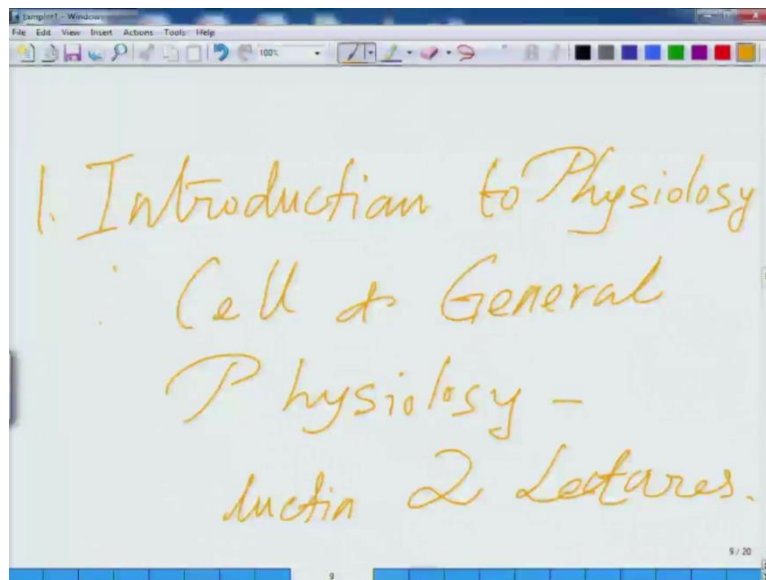 Windows
File Edit View Insert Actions Tools Help
100%
1. Introduction to Physiology
Cell & General
Physiology -
luctin 2 Lectures.
9 / 20
9